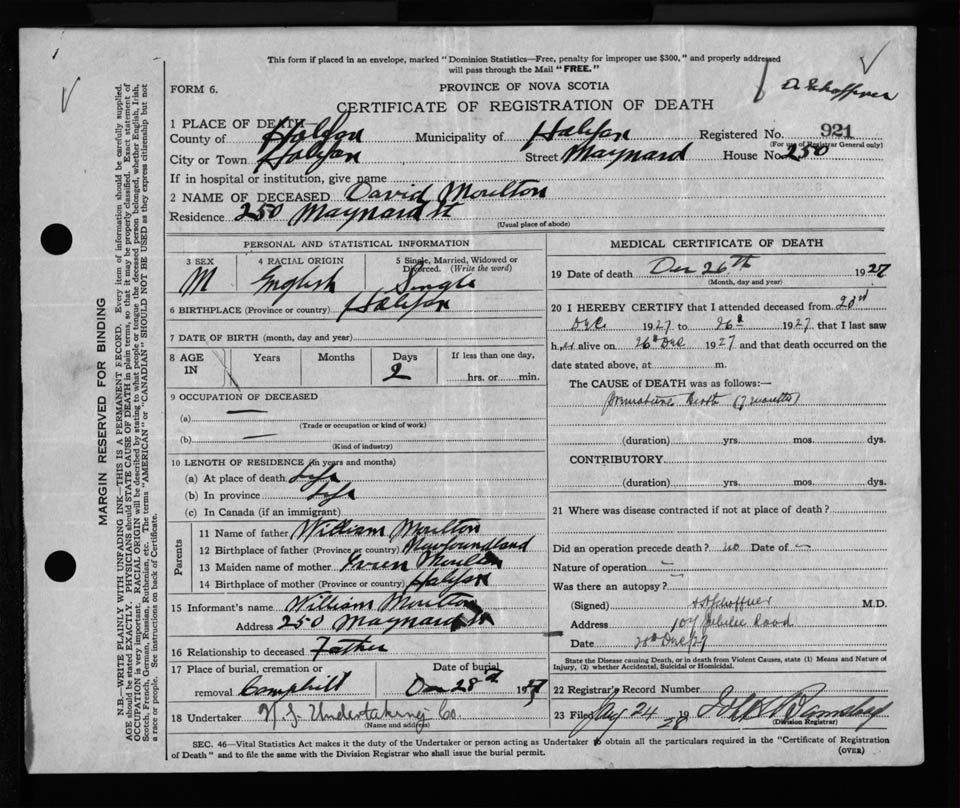 This form if placed in an envelope, marked "Dominion Statistics—Free, penalty for improper use $300," and properly addressed
will pass through the Mail "FREE."
FORM 6.
PROVINCE OF NOVA SCOTIA
CERTIFICATE OF REGISTRATION OF DEATH
1 PLACE OF DEATH
County of Halifax Municipality of Halifax Registered No. 921
(For use of Registrar General only)
City or Town Halifax Street Maynard House No. 250
If in hospital or institution, give name
2 NAME OF DECEASED David Moulton
Residence 250 Maynard St
(Usual place of abode)
PERSONAL AND STATISTICAL INFORMATION
3 SEX 4 RACIAL ORIGIN 5 Single, Married, Widowed or
Divorced. (Write the word)
M English Single
6 BIRTHPLACE (Province or country) Halifax
7 DATE OF BIRTH (month, day and year)
8 AGE IN Years Months Days If less than one day,
2 hrs. or min.
9 OCCUPATION OF DECEASED
(a) —
(Trade or occupation or kind of work)
(b) —
(Kind of industry)
10 LENGTH OF RESIDENCE (in years and months)
(a) At place of death Life
(b) In province Life
(c) In Canada (if an immigrant)
Parents
11 Name of father William Moulton
12 Birthplace of father (Province or country) Newfoundland
13 Maiden name of mother Moulton
14 Birthplace of mother (Province or country) Halifax
15 Informant's name William Moulton
Address 250 Maynard St
16 Relationship to deceased Father
17 Place of burial, cremation or Date of burial
removal Camphill Dec 28th 1927
18 Undertaker N.S. Undertaking Co.
(Name and address)
MEDICAL CERTIFICATE OF DEATH
19 Date of death Dec 26th 1927
(Month, day and year)
20 I HEREBY CERTIFY that I attended deceased from 23rd
Dec. 1927 to 26th 1927, that I last saw
h im alive on 26th Dec 1927 and that death occurred on the
date stated above, at m.
The CAUSE of DEATH was as follows:—
Premature Birth (7 months)
(duration) yrs. mos. dys.
CONTRIBUTORY
(duration) yrs. mos. dys.
21 Where was disease contracted if not at place of death?
Did an operation precede death? no Date of —
Nature of operation —
Was there an autopsy? —
(Signed) Schaffner M.D.
Address 107 Jubilee Road
Date 28th Dec/27
State the Disease causing Death, or in death from Violent Causes, state (1) Means and Nature of
Injury, (2) whether Accidental, Suicidal or Homicidal.
22 Registrar's Record Number
23 Filed 24 1928
(Division Registrar)
SEC. 46—Vital Statistics Act makes it the duty of the Undertaker or person acting as Undertaker to obtain all the particulars required in the "Certificate of Registration
of Death" and to file the same with the Division Registrar who shall issue the burial permit. (OVER)
MARGIN RESERVED FOR BINDING
N.B.—WRITE PLAINLY WITH UNFADING INK—THIS IS A PERMANENT RECORD. Every item of information should be carefully supplied.
AGE should be stated EXACTLY. PHYSICIANS should STATE CAUSE OF DEATH in plain terms, so that it may be properly classified. Exact statement of
OCCUPATION is very important. RACIAL ORIGIN will be described by stating to what people or tongue the deceased person belonged, whether English, Irish,
Scotch, French, German, Russian, Ruthenian, etc. The terms "AMERICAN" or "CANADIAN" SHOULD NOT BE USED as they express citizenship but not
a race or people. See instructions on back of Certificate.